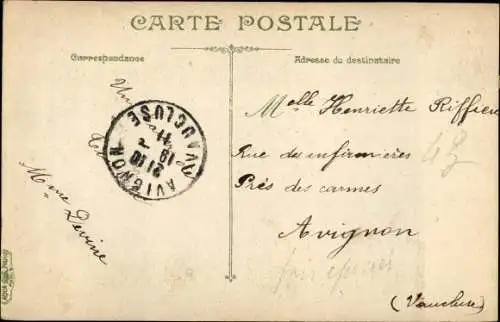 CARTE POSTALE
Correspondance
Adresse du destinataire
Un
Mme Devine
AVIGNON
VAUCLUSE
Melle Henriette Riffier
Rue des infirmières
Près des carmes
Avignon
(Vaucluse)